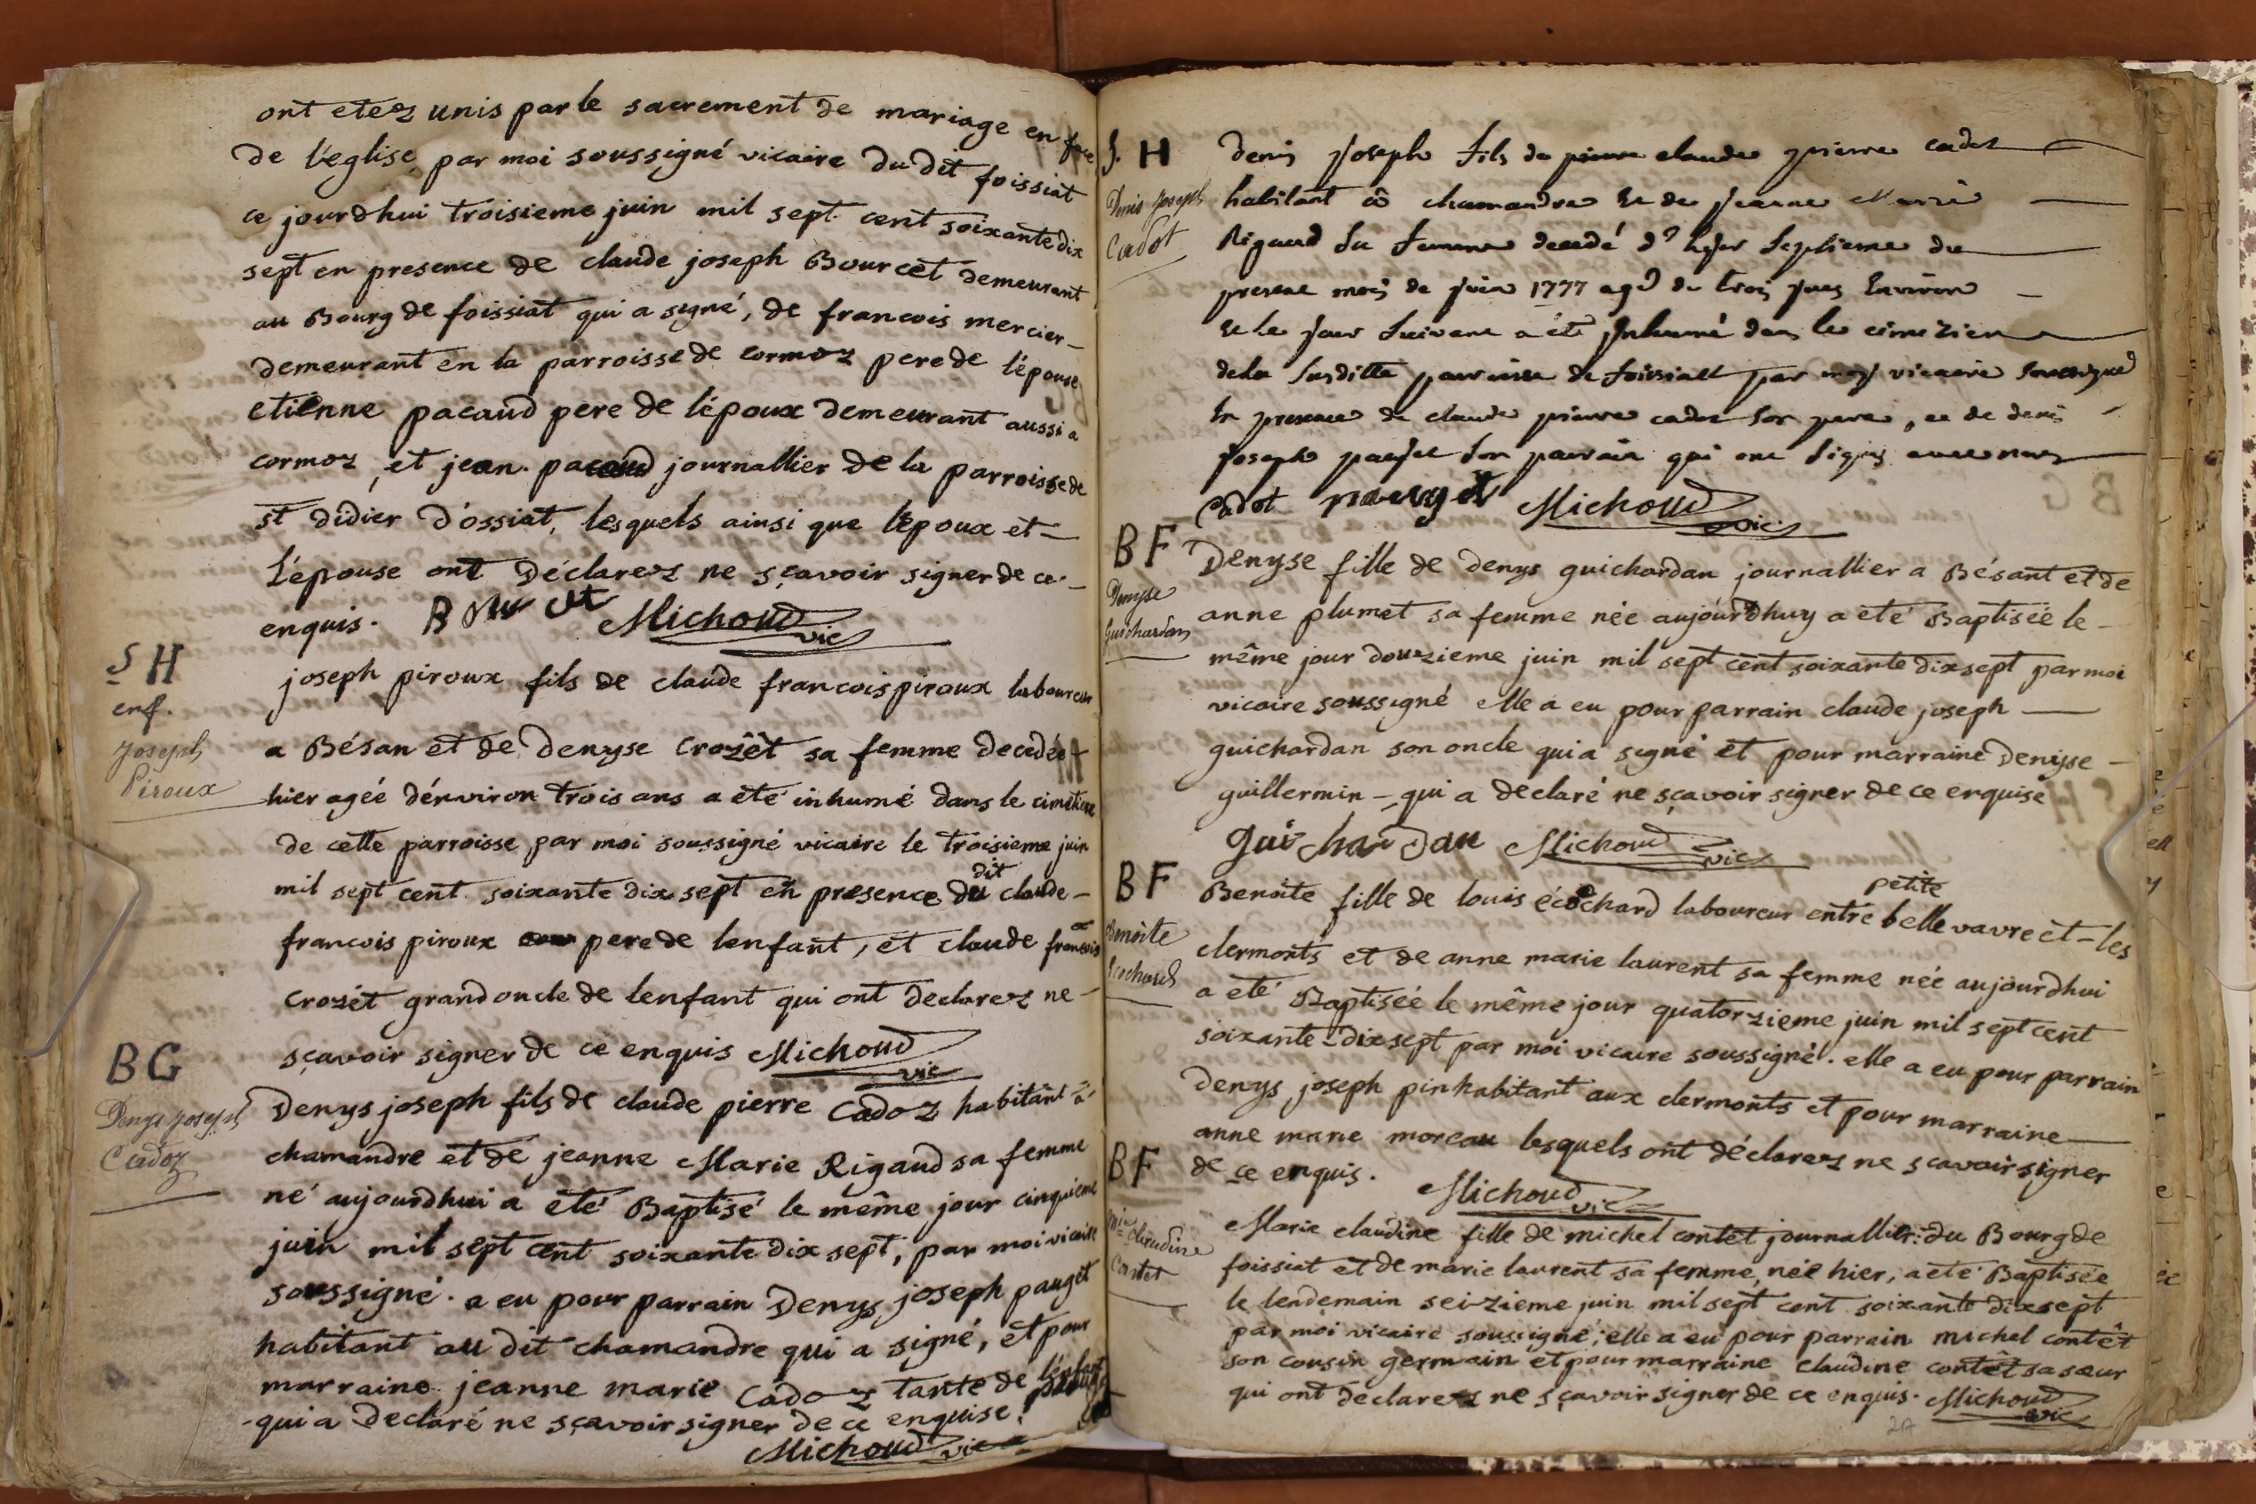 ont etez unis par le sacrement de mariage en face
de l'eglise, par moi soussigné vicaire du dit foissiat
ce jourdhui troisieme juin mil sept cent soixante dix
sept en presence de claude joseph Bourcet demeurant
au Bourg de foissiat qui a signé, de francois mercier
demeurant en la parroisse de cormoz pere de l'épouse
etienne pacaud pere de l'époux demeurant aussi a
cormoz, et jean pacaud journallier de la parroisse de
st didier d'ossiat, lesquels ainsi que l'époux et
l'épouse ont déclarez ne sçavoir signer de ce
enquis. Bourcet Michoud vic
S H
enf.
joseph
Piroux
joseph piroux fils de claude francois piroux laboureur
a Bésan et de Denyse crozêt sa femme decedée
hier agée d'énviron trois ans a été inhumé dans le cimetiere
de cette parroisse par moi soussigné vicaire le troisieme juin
mil sept cent soixante dix sept en presence du dit claude
francois piroux pere de lenfant, et claude francois
crozét grand oncle de lenfant qui ont declarez ne
sçavoir signer de ce enquis Michoud vic
BG
Denys joseph
Cadoz
Denys joseph fils de claude pierre Cadoz habitant à
chamandre et de jeanne Marie Rigaud sa femme
né aujourdhui a été Baptisé le même jour cinquieme
juin mil sept cent soixante dix sept, par moi vicaire
soussigné. a eu pour parrain Denys joseph pauget
habitant au dit chamandre qui a signé, et pour
marraine jeanne marie Cadoz tante de l'énfant
qui a declaré ne sçavoir signer de ce enquise.
Michoud vic
S. H
Denis joseph
Cadot
denis joseph fils de pierre claude pierre cadot
habitant à chamandre et de jeanne Marie
Rigaud sa femme decedé d'hyer septieme du
present mois de juin 1777 agé de trois jours Environ
et le jour suivant a été Inhumé dans le cimetiere
dela susditte parroisse de foissiatt par moy vicaire soussigné
En presence de claude pierre cadot son pere, et de denis
joseph paujet son parrain qui ont signés avec nous
Cadot pauget Michoud vic
BF
Denyse
Guichardan
Denyse fille de Denys guichardan journallier a Bésant et de
anne plumet sa femme née aujourdhuy a été Baptisée le
même jour douzieme juin mil sept cent soixante dix sept par moi
vicaire soussigné elle a eu pour parrain claude joseph
guichardan son oncle qui a signé et pour marraine Denyse
guillermin qui a declaré ne sçavoir signer de ce enquise
guichardan Michoud vic
BF
Benoite
Ecochard
Benoite fille de louis écochard laboureur entre petite belle vavre et les
clermonts et de anne marie laurent sa femme née aujourdhui
a été Baptisée le même jour quatorzieme juin mil sept cent
soixante dix sept par moi vicaire soussigné. elle a eu pour parrain
Denys joseph pin habitant aux clermonts et pour marraine
anne marie moreau lesquels ont déclarez ne sçavoir signer
de ce enquis. Michoud vic
BF
Mie claudine
Contet
Marie claudine fille de michel contet journallier du Bourg de
foissiat et de marie laurent sa femme, née hier, a été Baptisée
le lendemain seizieme juin mil sept cent soixante dix sept
par moi vicaire soussigné; elle a eu pour parrain michel contêt
son cousin germain et pour marraine claudine contêt sa sœur
qui ont declarez ne sçavoir signer de ce enquis. Michoud
vic